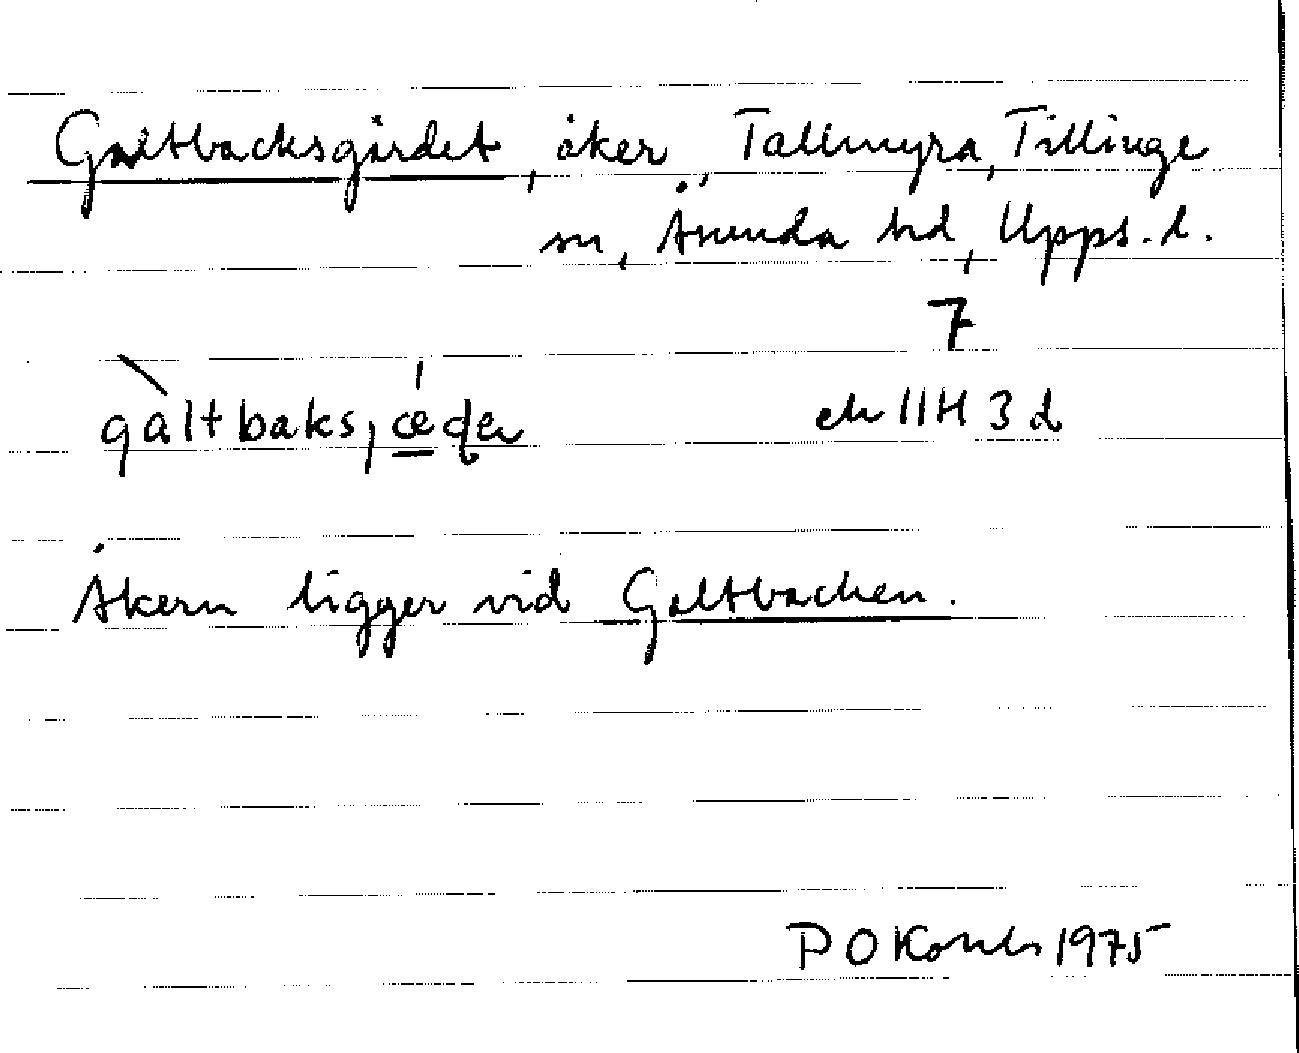 Galtbacksgärdet, åker, Tallmyra, Tillinge
sn, Åsunda hd, Upps. l.
7
gàltbaks,
ek 11H 3d
Åkern ligger vid Galtbacken.
P O 1975